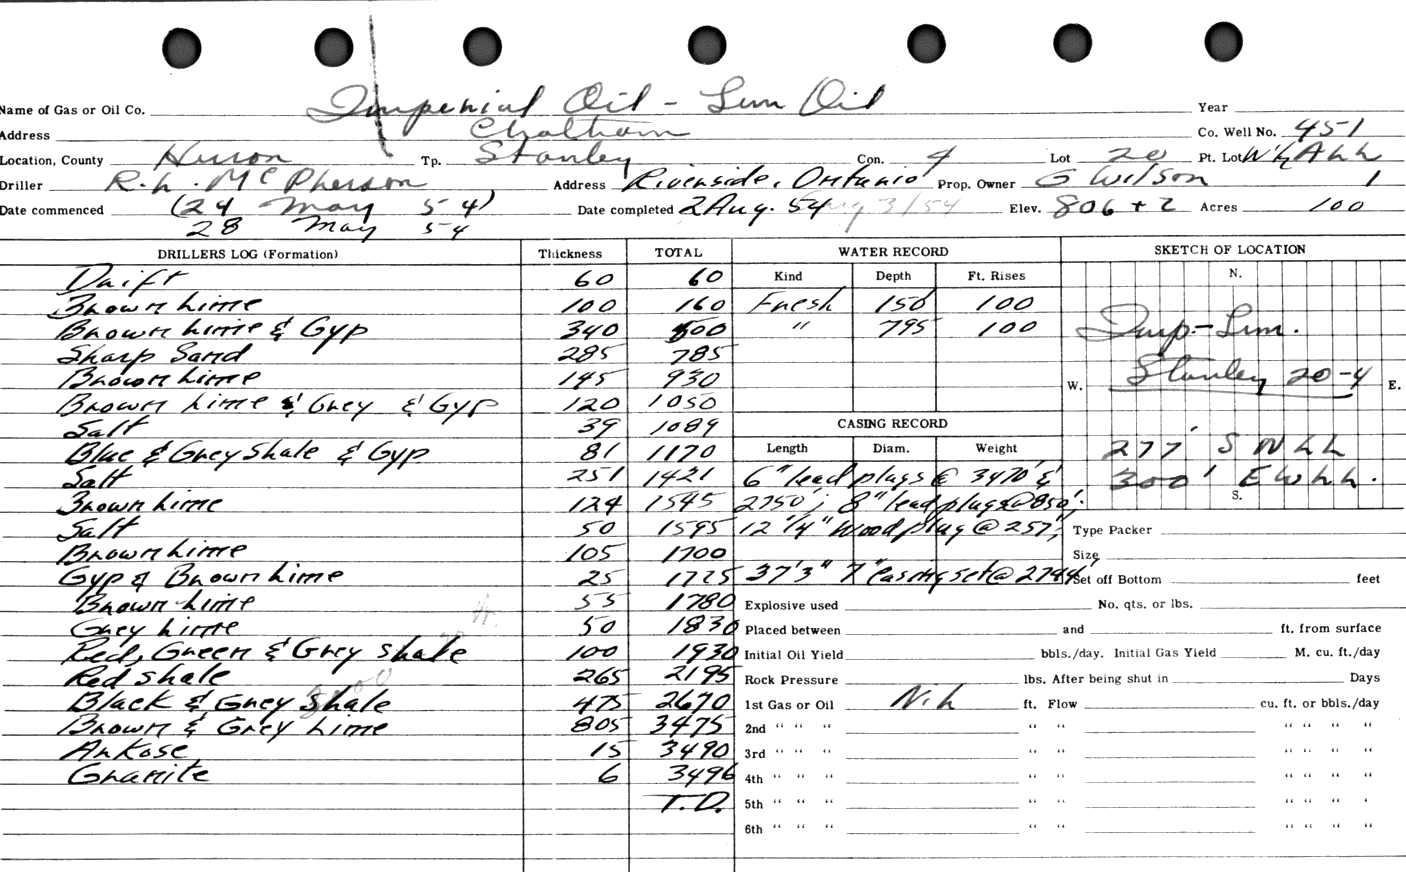 Name of Gas or Oil Co. Imperial Oil - Lim Oil Year
Address Chatham Co. Well No. 451
Location, County Huron Tp. Stanley Con. 4 Lot 20 Pt. Lot W½
Driller R.L. McPherson Address Riverside, Ontario Prop. Owner G Wilson 1
Date commenced (24 May 54) Date completed 2 Aug. 54 Aug 3/54 Elev. 806 + 2 Acres 100
28 May 54
DRILLERS LOG (Formation) Thickness TOTAL WATER RECORD SKETCH OF LOCATION
Kind Depth Ft. Rises N.
Drift 60 60
Brown Lime 100 160 Fresh 150 100
Brown Lime & Gyp 340 500 " 795 100
Imp. - Lim.
Sharp Sand 285 785
Brown Lime 145 930
W. Stanley 20-4 E.
Brown Lime & Grey & Gyp 120 1050
Salt 39 1089 CASING RECORD
Blue & Grey Shale & Gyp 81 1170 Length Diam. Weight
277' S N L L
Salt 251 1421 6" lead plugs @ 3470' &
300' E W L L.
S.
Brown Lime 124 1545 2750'; 8" lead plugs @ 850';
Salt 50 1595 12 1/4" Wood plug @ 257', Type Packer
Brown Lime 105 1700 Size
Gyp & Brown Lime 25 1725 37'3" 7" casing set @ 2744' Set off Bottom feet
Brown Lime 55 1780 Explosive used No. qts. or lbs.
Grey Lime 50 1830 Placed between and ft. from surface
Red, Green & Grey Shale 100 1930 Initial Oil Yield bbls./day. Initial Gas Yield M. cu. ft./day
Red Shale 265 2195 Rock Pressure lbs. After being shut in Days
Black & Grey Shale 475 2670 1st Gas or Oil Nil ft. Flow cu. ft. or bbls./day
Brown & Grey Lime 805 3475 2nd " " " " " " " " "
Arkose 15 3490 3rd " " " " " " " " "
Granite 6 3496 4th " " " " " " " " "
T.D. 5th " " " " " " " " '
6th " " " " " " " " "